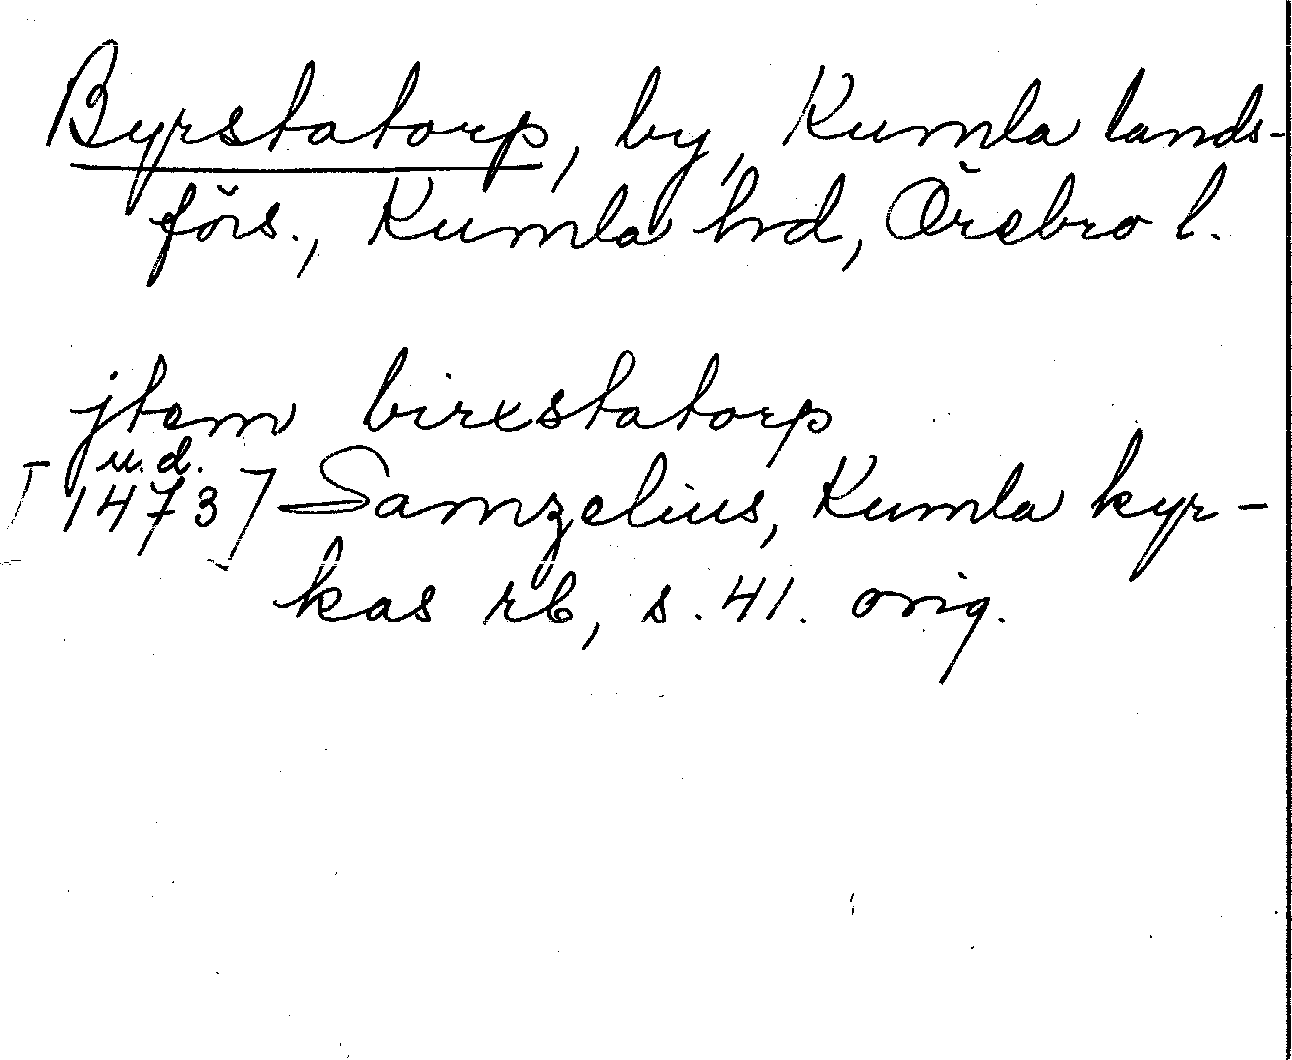 Byrstatorp, by, Kumla lands-
förs., Kumla hd, Örebro l.
jtem birxstatorp
u. d.
[1473] Samzelius, Kumla kyr-
kas rb, s. 41. orig.